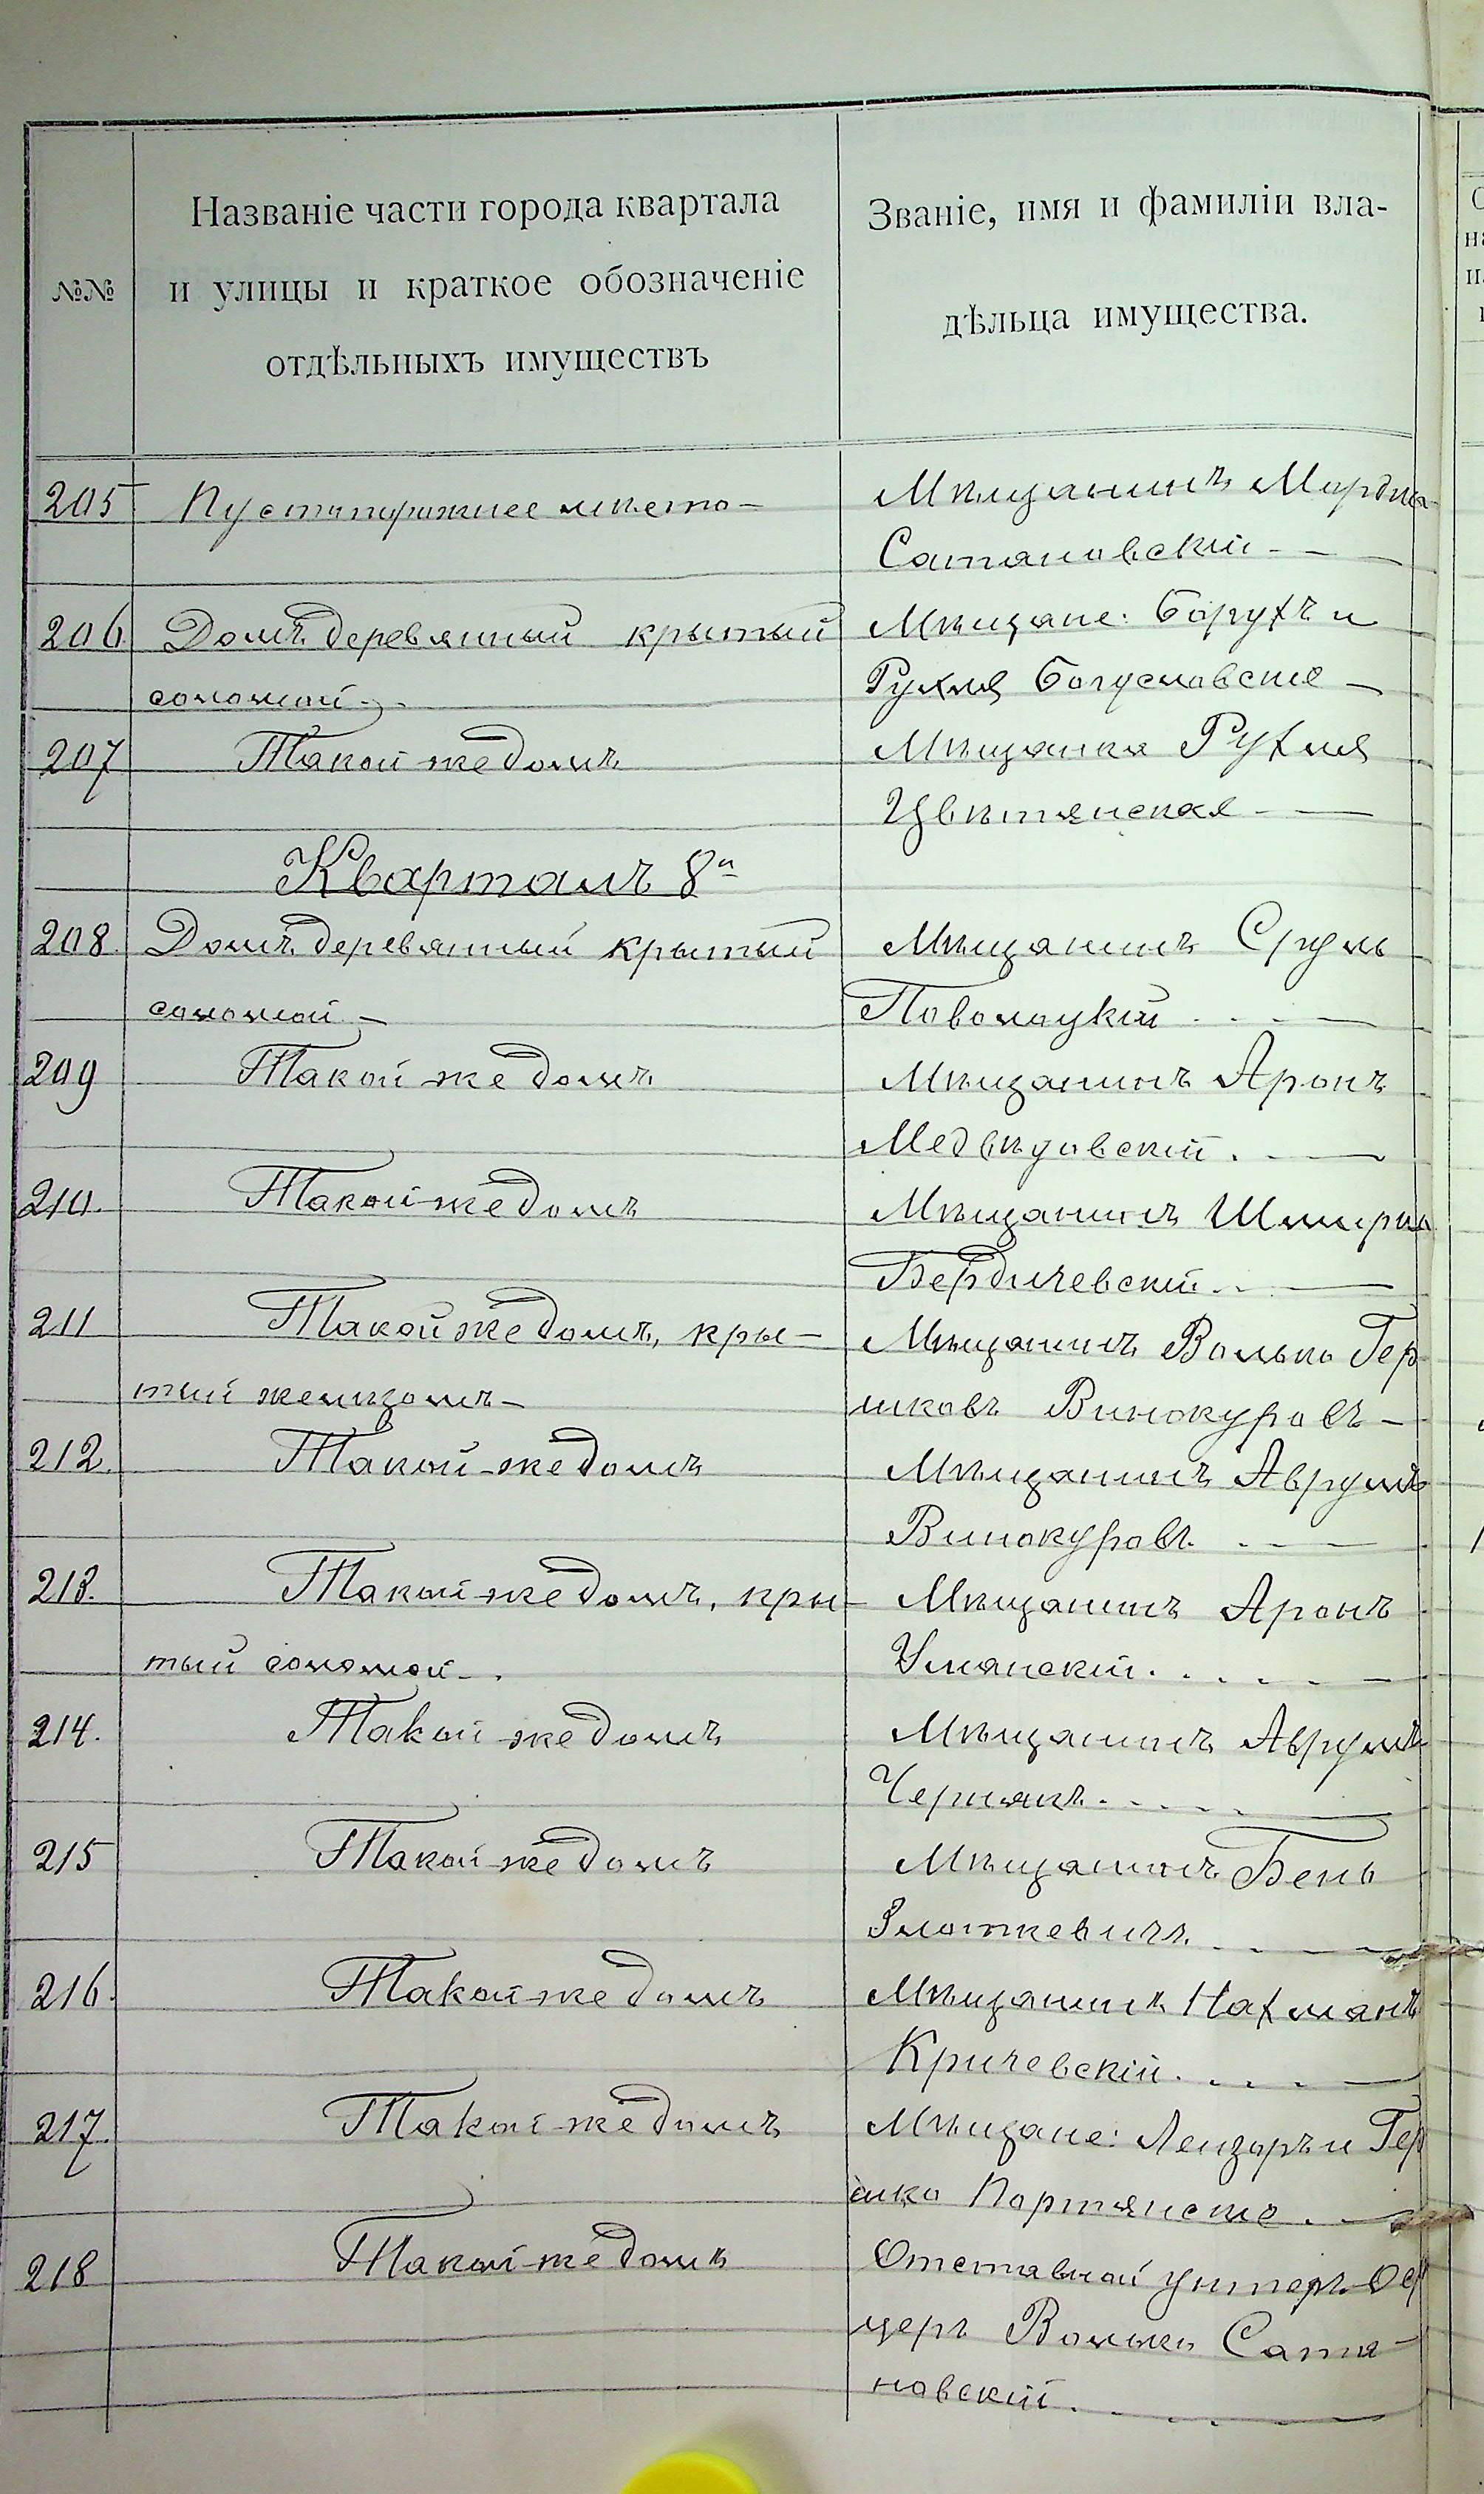 №№
Названіе части города квартала
и улицы и краткое обозначеніе
отдѣльныхъ имуществъ
Званіе, имя и фамиліи вла-
дѣльца имущества.
205 Пустопорожнее мѣсто - Мѣщанинъ Мордко
Сатановскій -
206. Домъ деревянный крытый Мѣщане: Борухъ и
соломой. Рухля Богуславскіе -
207 Такой же домъ Мѣщанка Рухля
Цвѣтянская -
Кварталъ 8й
208. Домъ деревянный крытый Мѣщанинъ Сруль
соломой - Поволоцкій
209 Такой же домъ Мѣщанинъ Аронъ
Медвѣдовскій.
210. Такой же домъ Мѣщанинъ Шмерко
Бердичевскій.
211 Такой же домъ, кры- Мѣщанинъ Волько Гер
тый желѣзомъ - шковъ Винокуровъ -
212. Такой же домъ Мѣщанинъ Аврумъ
Винокуровъ.
213. Такой же домъ, кры- Мѣщанинъ Аронъ
тый соломой. Уманскій.
214. Такой же домъ Мѣщанинъ Аврумъ
Чернякъ.
215 Такой же домъ Мѣщанинъ Бень
Злоткевичъ.
216. Такой же домъ Мѣщанинъ Нахманъ
Кричевскій.
217. Такой же домъ Мѣщане: Лейзоръ и Гер
шко Портянскіе.
218 Такой же домъ Отставной унтеръ-Оф
церъ Волько Сата-
новскій.